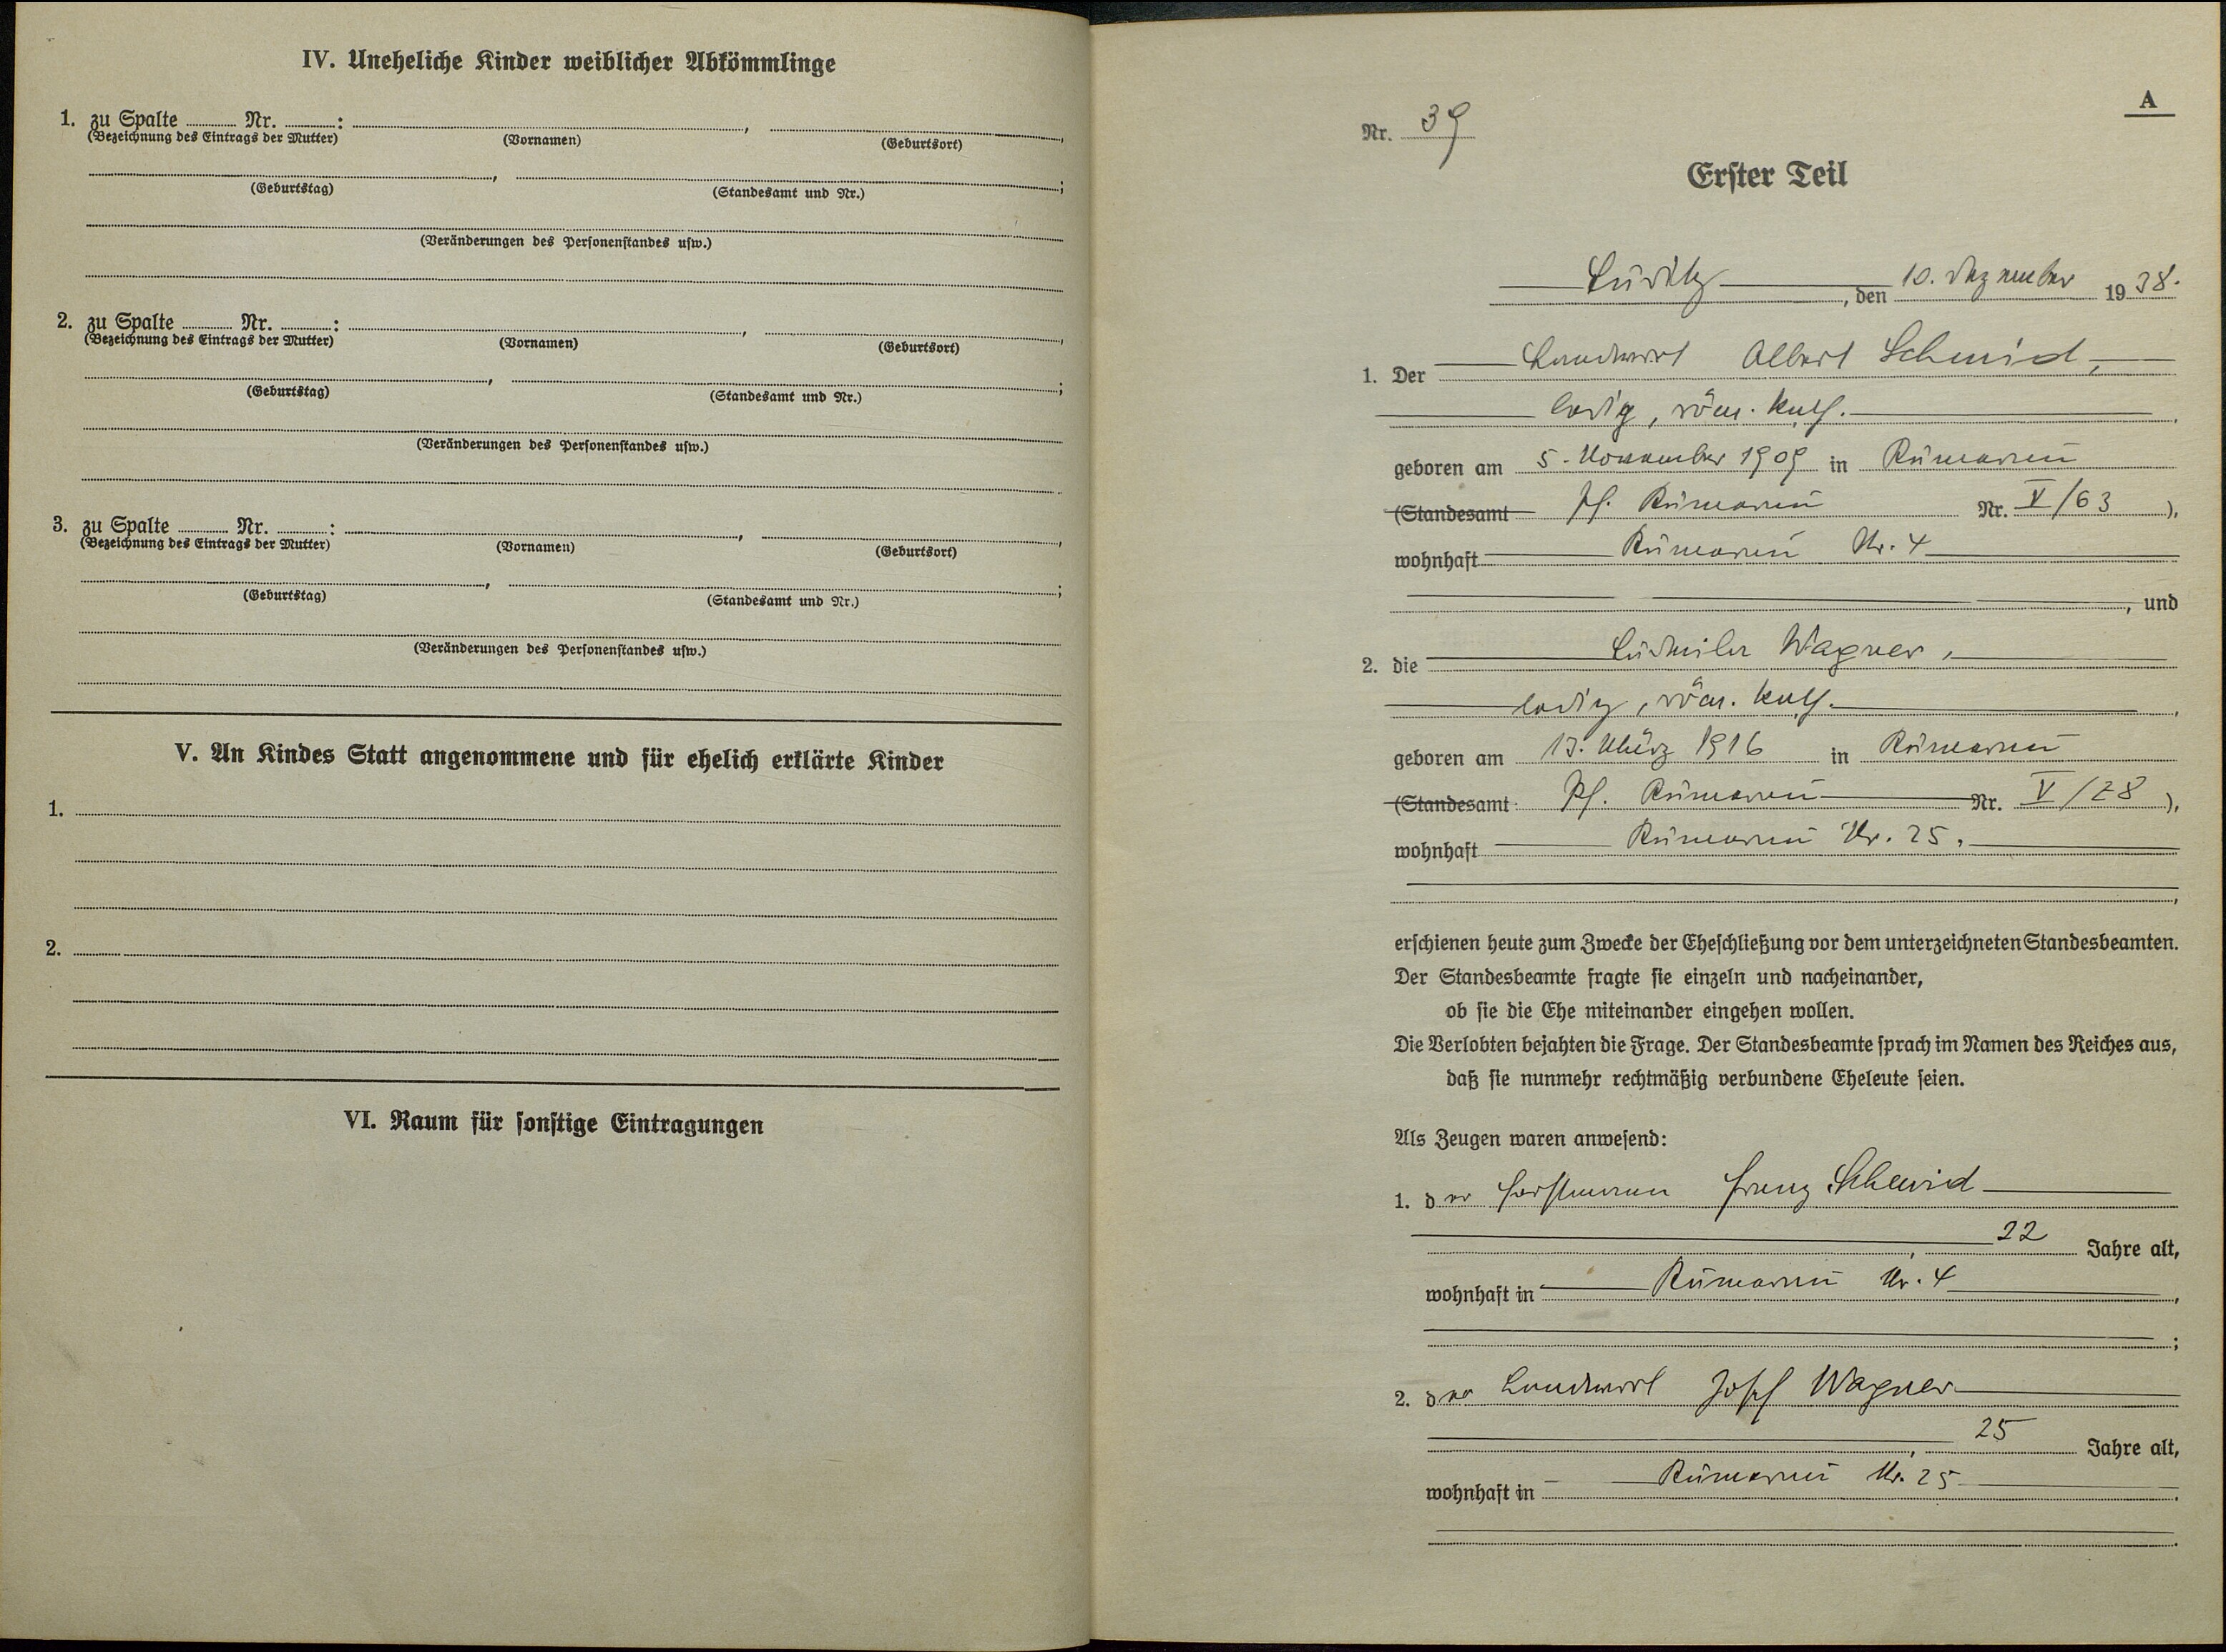 IV. Uneheliche Kinder weiblicher Abkömmlinge
1. zu Spalte Nr. : ,
(Bezeichnung des Eintrags der Mutter) (Vornamen) (Geburtsort)
, ;
(Geburtstag) (Standesamt und Nr.)
(Veränderungen des Personenstandes usw.)
2. zu Spalte Nr. : ,
(Bezeichnung des Eintrags der Mutter) (Vornamen) (Geburtsort)
, ;
(Geburtstag) (Standesamt und Nr.)
(Veränderungen des Personenstandes usw.)
3. zu Spalte Nr. : ,
(Bezeichnung des Eintrags der Mutter) (Vornamen) (Geburtsort)
, ;
(Geburtstag) (Standesamt und Nr.)
(Veränderungen des Personenstandes usw.)
V. An Kindes Statt angenommene und für ehelich erklärte Kinder
1.
2.
VI. Raum für sonstige Eintragungen
A
Nr. 39
Erster Teil
, den 10. Dezember 1938.
1. Der Landwirt Albert Schmid,
ledig, röm. kath.
geboren am 5. November 1909 in
(Standesamt Pf. Nr. V/63 ),
wohnhaft Nr. 4
, und
2. die Ludmila Wagner,
ledig, röm. kath.
geboren am 13. März 1916 in
(Standesamt Pf. Nr. V/78 ),
wohnhaft Nr. 25.
erschienen heute zum Zwecke der Eheschließung vor dem unterzeichneten Standesbeamten.
Der Standesbeamte fragte sie einzeln und nacheinander,
ob sie die Ehe miteinander eingehen wollen.
Die Verlobten bejahten die Frage. Der Standesbeamte sprach im Namen des Reiches aus,
daß sie nunmehr rechtmäßig verbundene Eheleute seien.
Als Zeugen waren anwesend:
1. der Forstmann Franz Schmid
, 22 Jahre alt,
wohnhaft in Nr. 4 ,
;
2. der Landwirt Josef Wagner
, 25 Jahre alt,
wohnhaft in Nr. 25